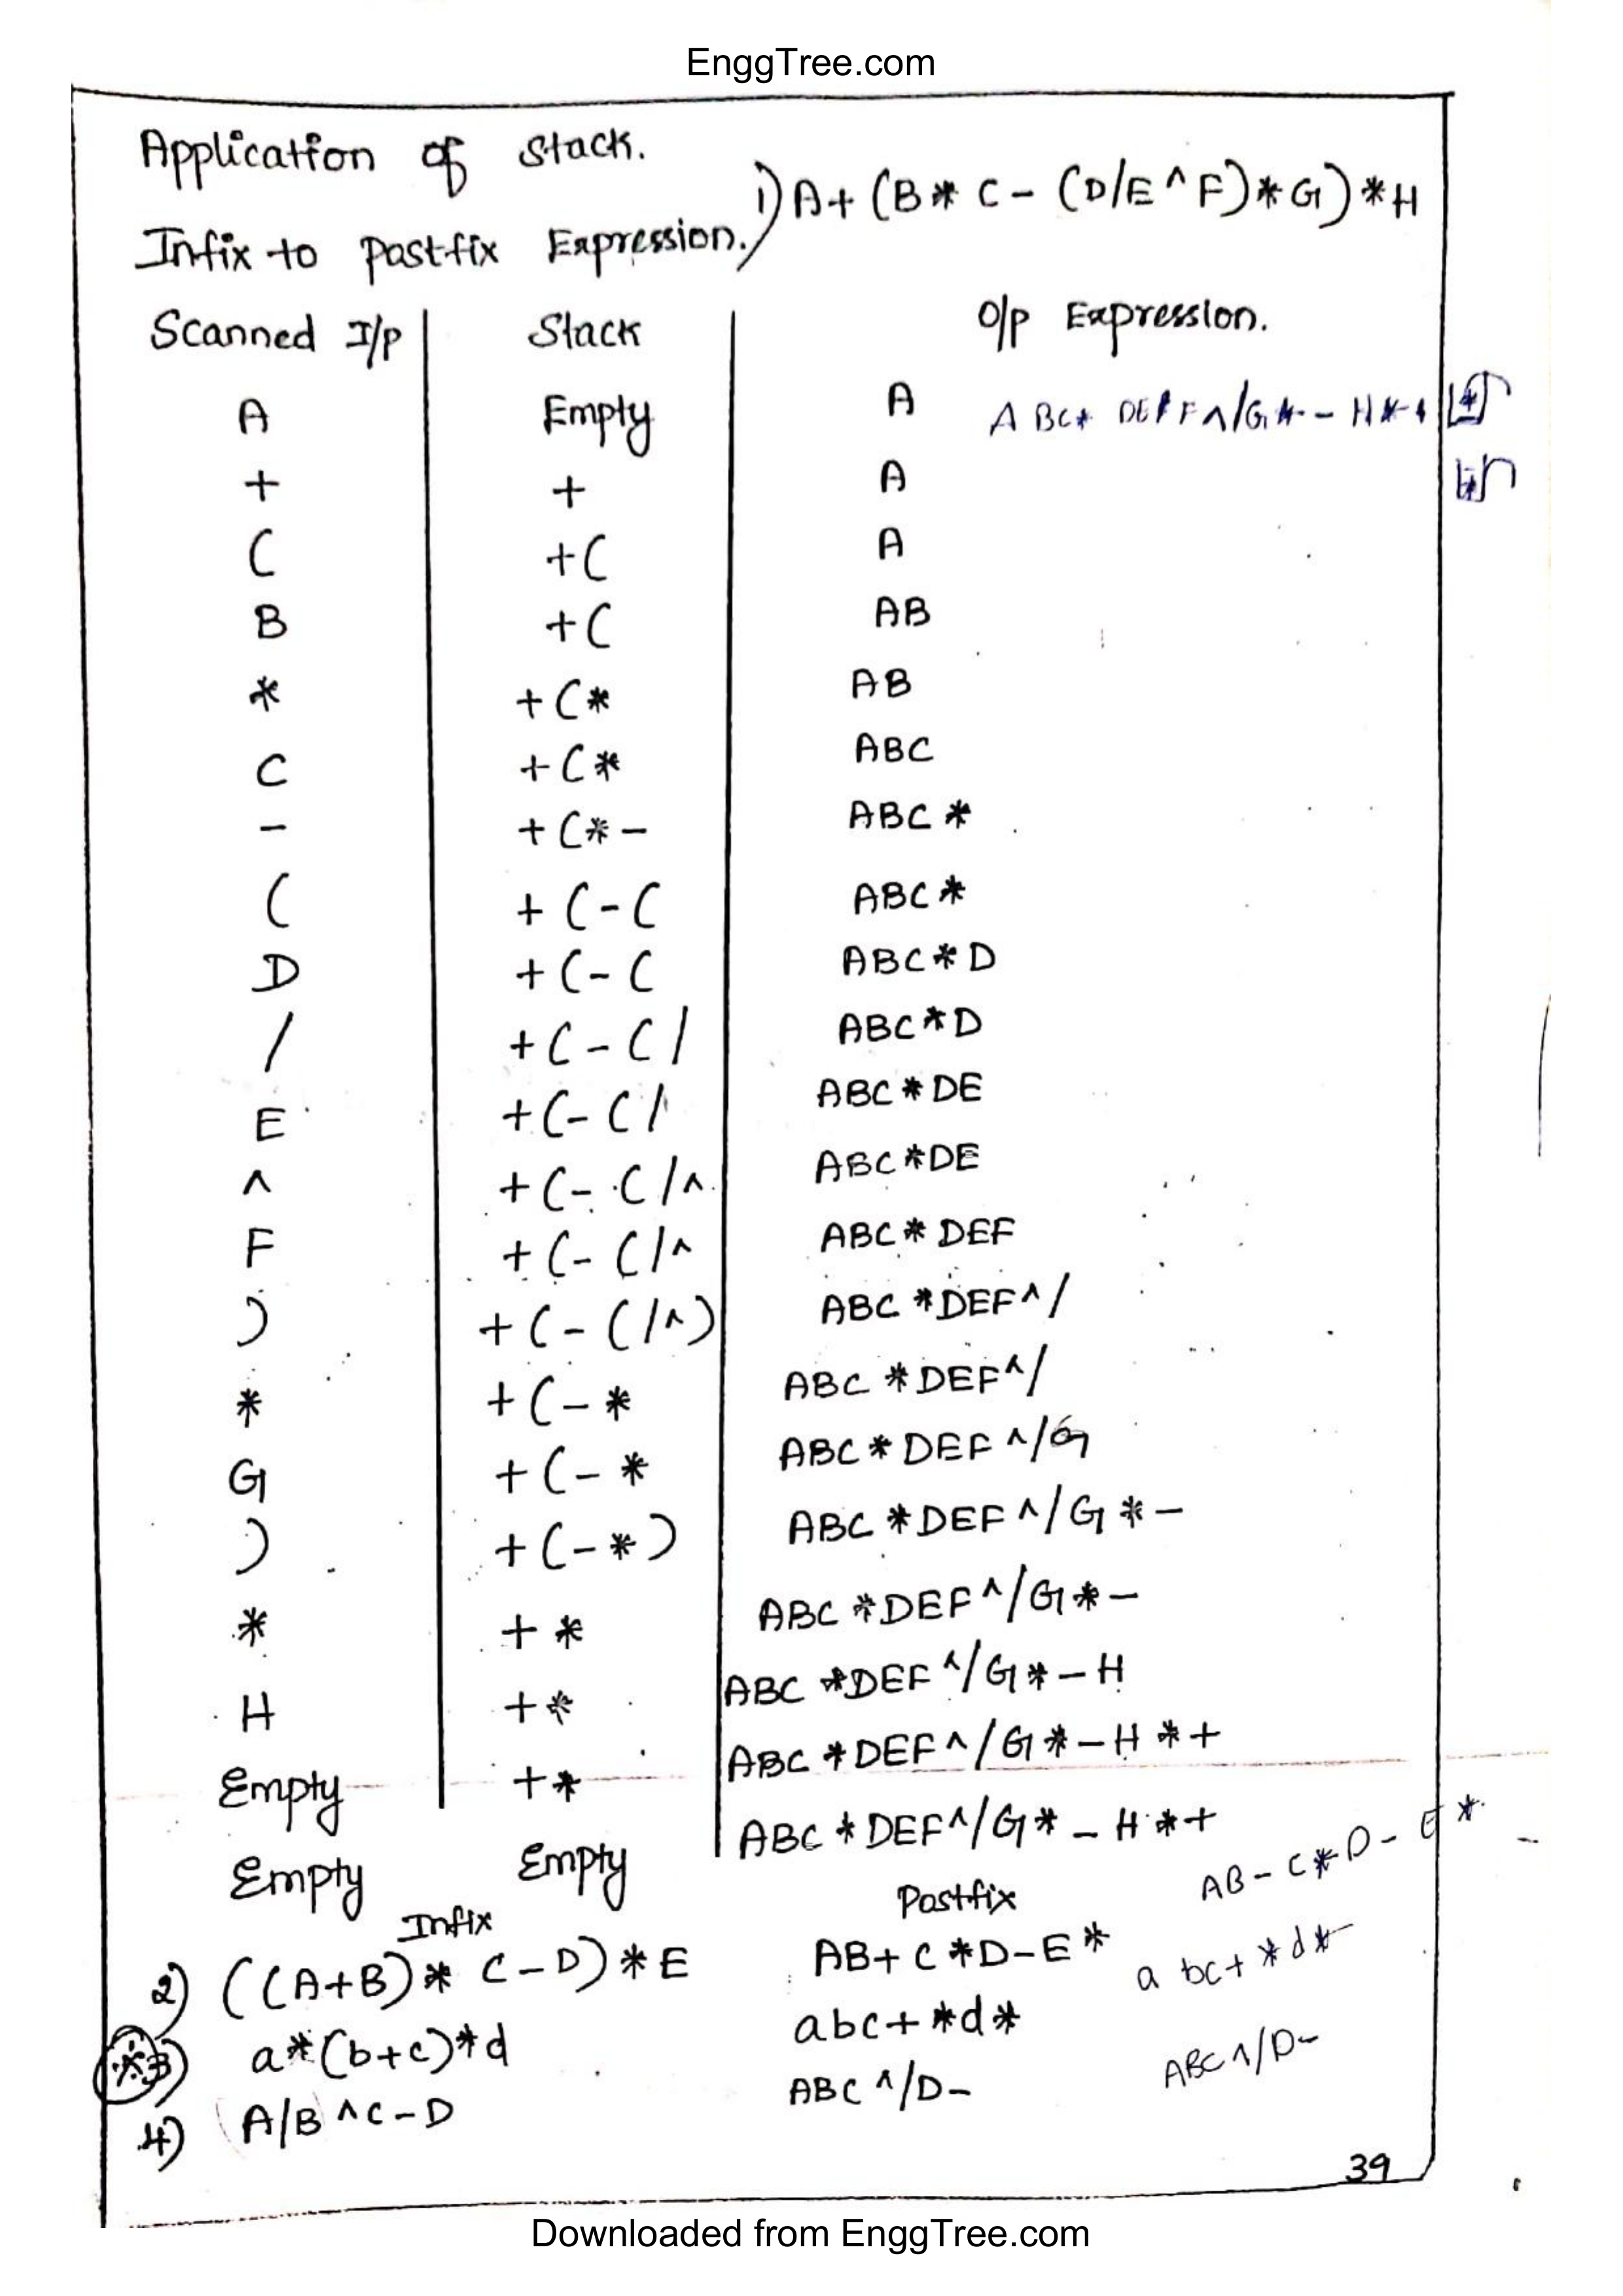 EnggTree.com
Application of Stack.
1) A+(B * C - (D/E ^ F) * G) * H
Infix to Postfix Expression.
Scanned I/p Stack O/p Expression.
A Empty A ABC* DE F^/G*-H*+
+ + A
( +( A
B +( AB
* +(* AB
C +(* ABC
- +(*- ABC*
( +(-( ABC*
D +(-( ABC*D
/ +(-(/ ABC*D
E +(-(/ ABC*DE
^ +(-(/^ ABC*DE
F +(-(/^ ABC*DEF
) +(-(/^) ABC*DEF^/
* +(-* ABC*DEF^/
G +(-* ABC*DEF^/G
) +(-*) ABC*DEF^/G*-
* +* ABC*DEF^/G*-
H +* ABC*DEF^/G*-H
Empty +* ABC*DEF^/G*-H*+
Empty Empty ABC*DEF^/G*-H*+
Infix Postfix AB-C*D-E*
2) ((A+B)* C-D)*E AB+C*D-E* a bc+*d*
3) a*(b+c)*d abc+*d*
4) A/B^C-D ABC^/D- ABC^/D-
39
Downloaded from EnggTree.com